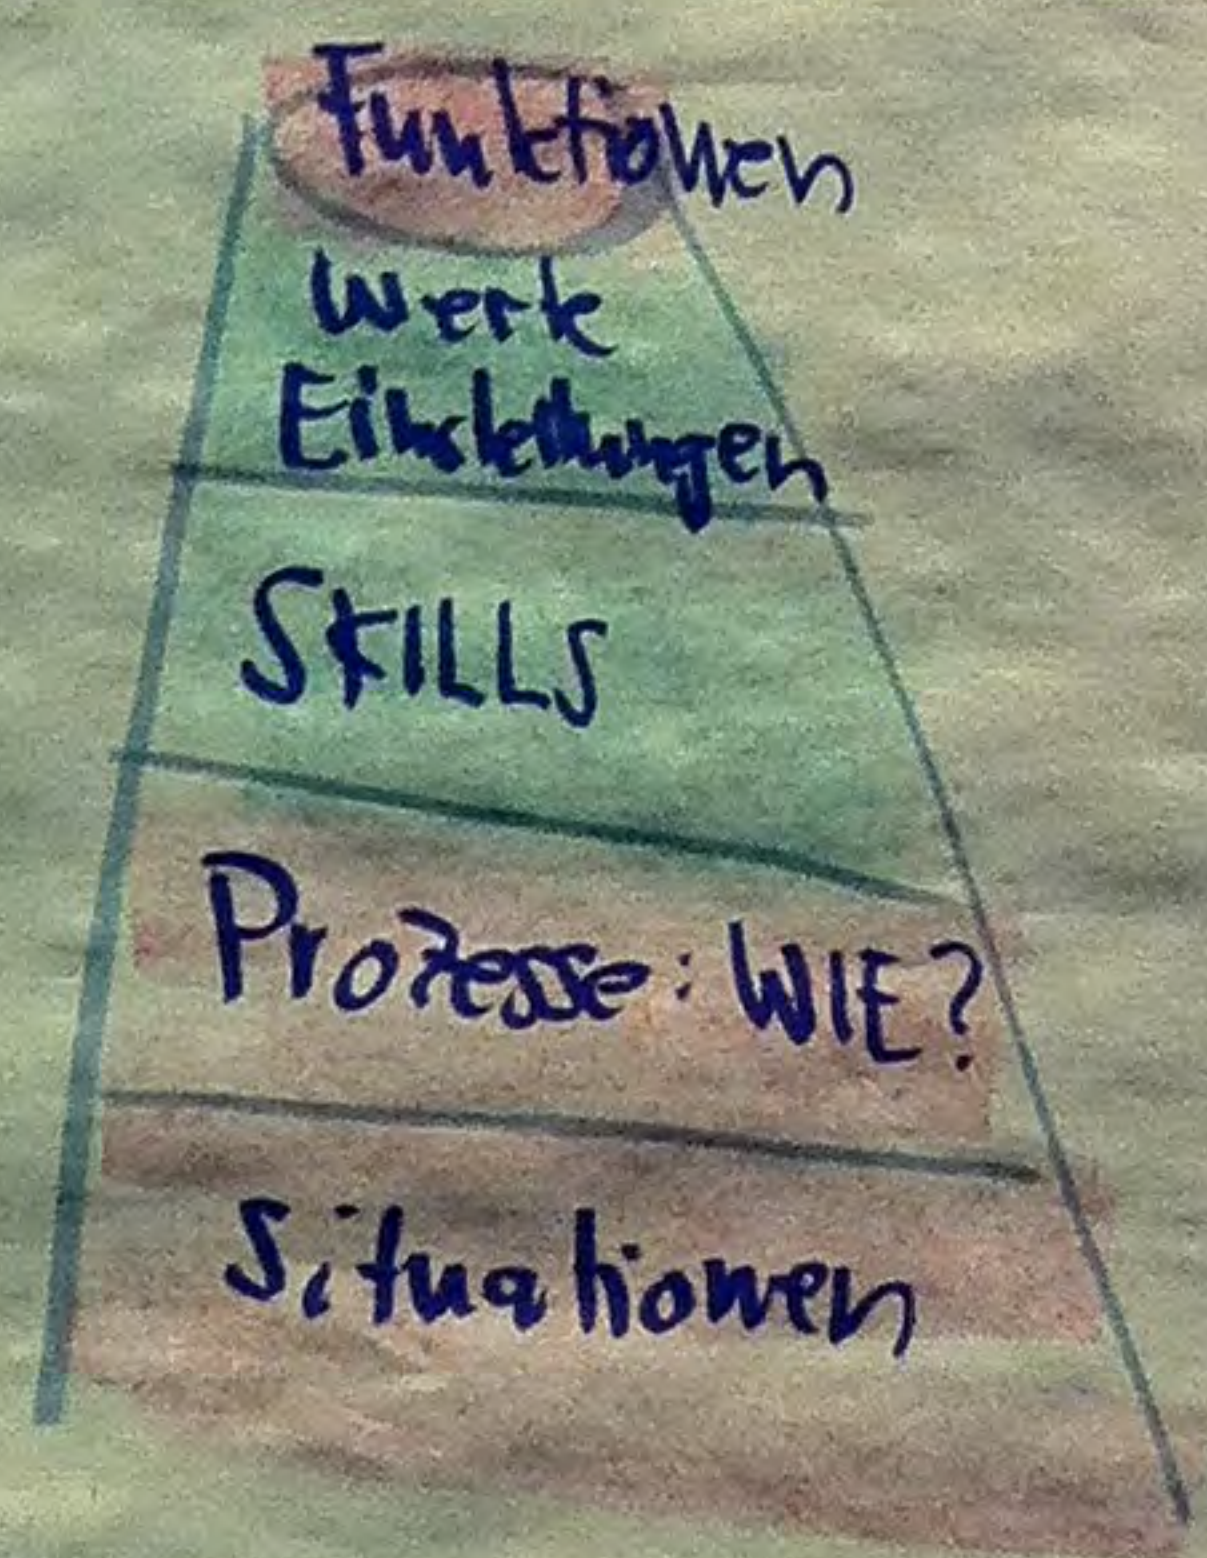 Funktionen
Werte
Einstellungen
SKILLS
Prozesse: WIE?
Situationen